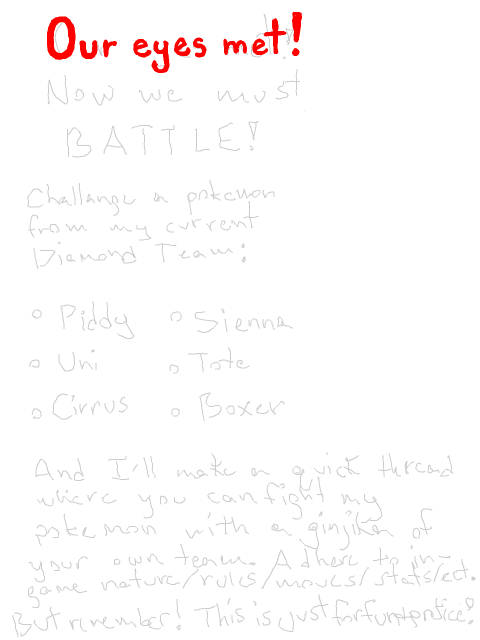 Our eyes met!
Now we must
BATTLE!
Challange a pokemon
from my current
Diamond Team:
Piddy
Sienna
Uni
Tote
Cirrus
Boxer
And I'll make a quick thread
where you can fight my
pokemon with a ginjika of
your own team. Adhere to in-
game nature/rules/moves/stats/ect.
But remember! This is just for fun+protice!